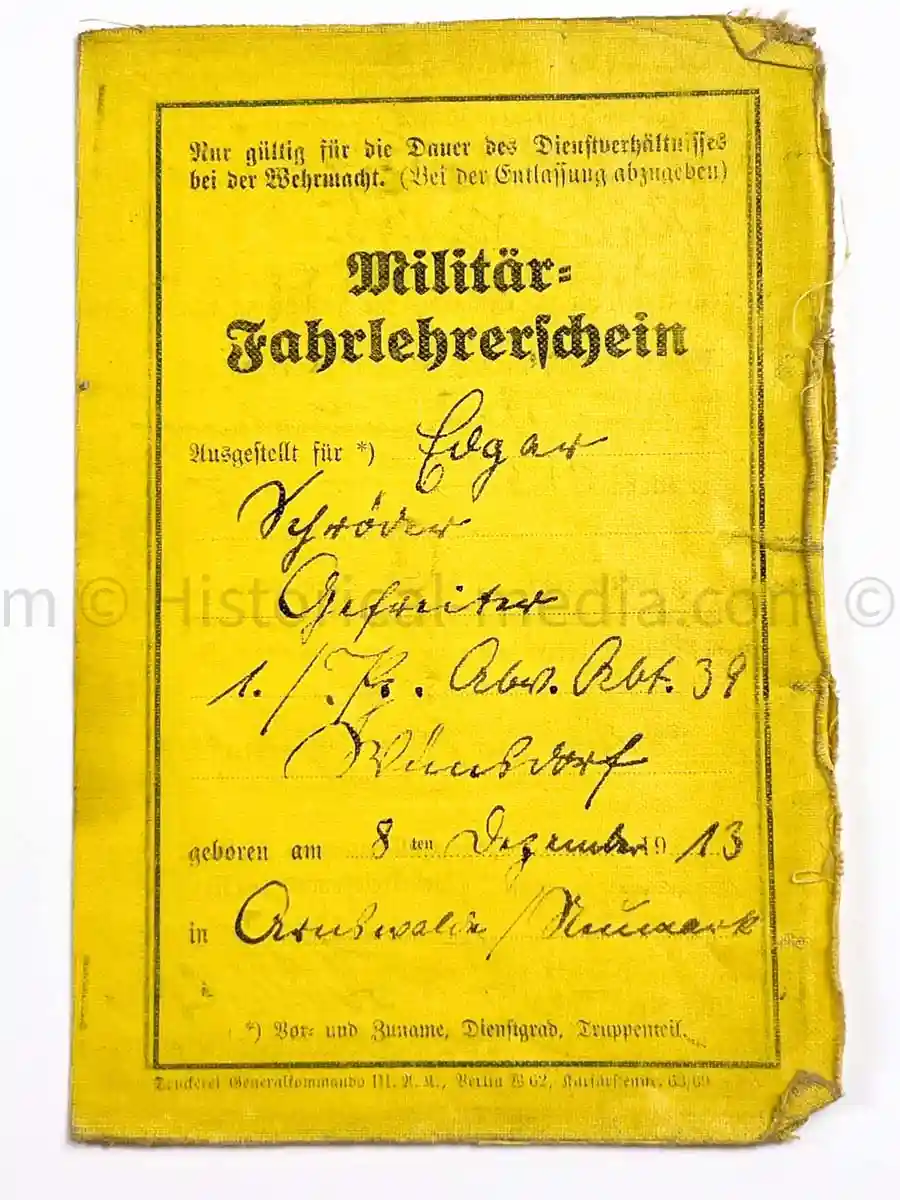 Nur gültig für die Dauer des Dienstverhältnisses
bei der Wehrmacht. (Bei der Entlassung abzugeben)
Militär-
Fahrlehrerschein
Ausgestellt für *) Edgar
Schröder
Gefreiter
m © Historical-media.com ©
1./Pz. Abw. Abt. 39
Wünsdorf
geboren am 8 ten Dezember 19 13
in Arnswalde / Neumark
*) Vor- und Zuname, Dienstgrad, Truppenteil.
Druckerei Generalkommando III. A.K., Berlin W 62, Kurfürstenstr. 63/69